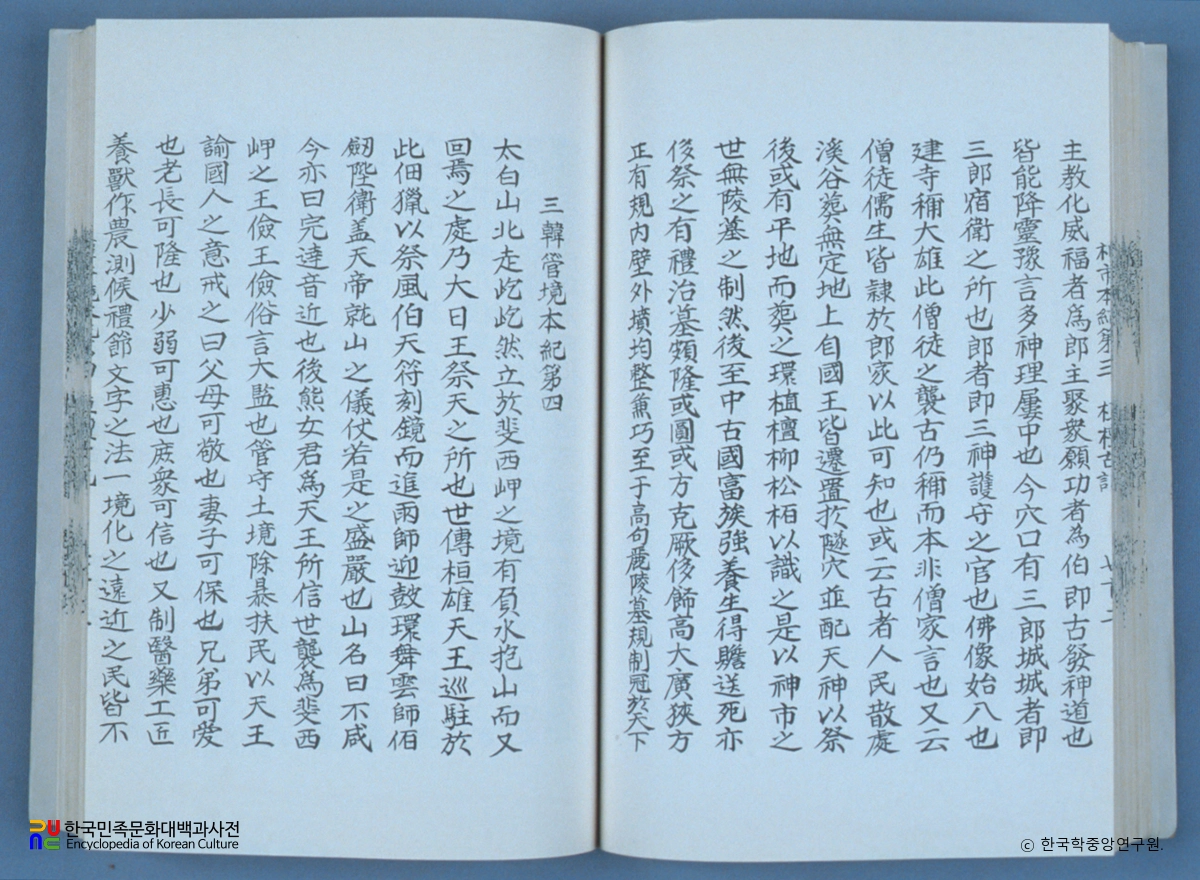 主教化威福者爲郎主聚衆願功者為伯即古發神道也
皆能降靈豫言多神理屢中也今穴口有三郎城城者即
三郎宿衛之所也郎者即三神護守之官也佛像始入也
建寺稱大雄此僧徒之襲古仍稱而本非僧家言也又云
僧徒儒生皆隷於郎家以此可知也或云古者人民散處
溪谷葬無定地上自國王皆遷置於隧穴並配天神以祭
後或有平地而葬之環植檀柳松栢以識之是以神市之
世無陵墓之制然後至中古國富族強養生得贍送死亦
侈祭之有禮治墓頗隆或圓或方克厥侈飾高大廣狹方
正有規内壁外墳均整兼巧至于高句麗陵墓規制冠於天下
三韓管境本紀第四
太白山北走屹屹然立於斐西岬之境有負水抱山而又
回焉之處乃大日王祭天之所也世傳桓雄天王巡駐於
此佃獵以祭風伯天符刻鏡而進雨師迎鼓環舞雲師佰
劒陛衛盖天帝就山之儀仗若是之盛嚴也山名曰不咸
今亦曰完達音近也後熊女君為天王所信世襲爲斐西
岬之王儉王儉俗言大監也管守土境除暴扶民以天王
諭國人之意戒之曰父母可敬也妻子可保也兄弟可愛
也老長可隆也少弱可惠也庶衆可信也又制醫藥工匠
養獸作農測候禮節文字之法一境化之遠近之民皆不
한국민족문화대백과사전
Encyclopedia of Korean Culture
© 한국학중앙연구원.